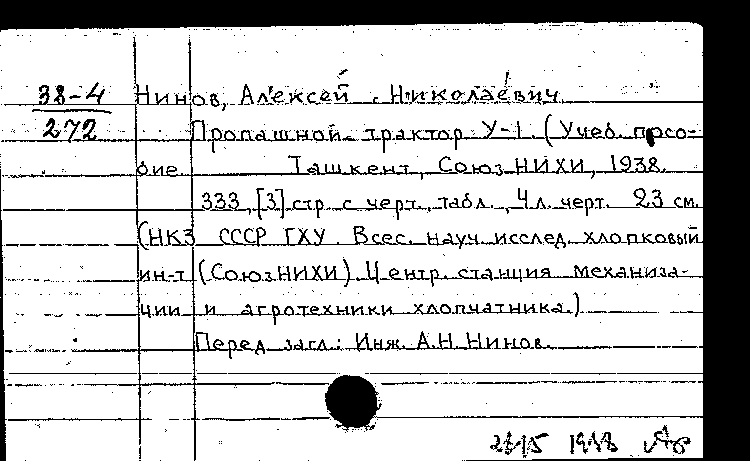 38-4
272
Нинов, Алексей Николаевич
Пропашной трактор У-1. (Учеб. посо-
бие.
Ташкент, СоюзНИХИ, 1938.
333, [3] стр с черт., табл., 4 л. черт. 23 см.
(НКЗ СССР ГХУ. Всес. науч. исслед. хлопковый
ин-т (СоюзНИХИ). Центр. станция механиза-
ции и агротехники хлопчатника.)
Перед загл.: Инж. А.Н. Нинов.